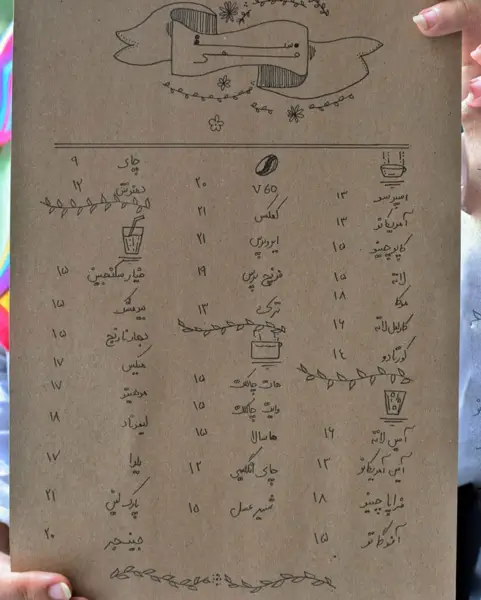 اسپرسو ۱۳
آمریکانو ۱۳
کاپوچینو ۱۵
لاته ۱۵
موکا ۱۸
کارامل لاته ۱۶
کورتادو ۱۴
آیس لاته ۱۶
آیس آمریکانو ۱۳
فراپاچینو ۱۸
آفوگاتو ۱۵
V60 ۲۰
کمکس ۲۱
ایروپرس ۲۱
فرنچ پرس ۱۹
ترک ۱۳
هات چاکلت ۱۵
وایت چاکلت ۱۵
ماسالا ۱۵
چای انگلیسی ۱۲
شیر عسل ۱۵
چای ۹
دمنوش ۱۲
خیار سکنجبین ۱۵
۱۵
بهار نارنج ۱۵
میکس ۱۷
موهیتو ۱۷
لیموناد ۱۸
۱۷
۲۱
جینجر ۲۰